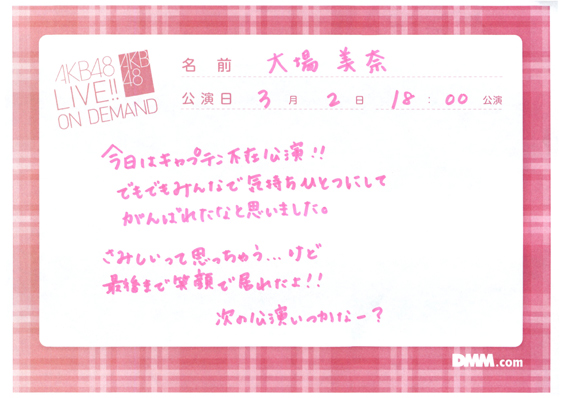 AKB48
LIVE!!
ON DEMAND
AKB
48
名前 大場美奈
公演日 3月2日 18:00 公演
今日はキャプテン不在公演!!
でもでもみんなで気持ちひとつにして
がんばれたなと思いました。
さみしいって思っちゃう...けど
最後まで笑顔で居れたよ!!
次の公演いつかなー?
DMM.com